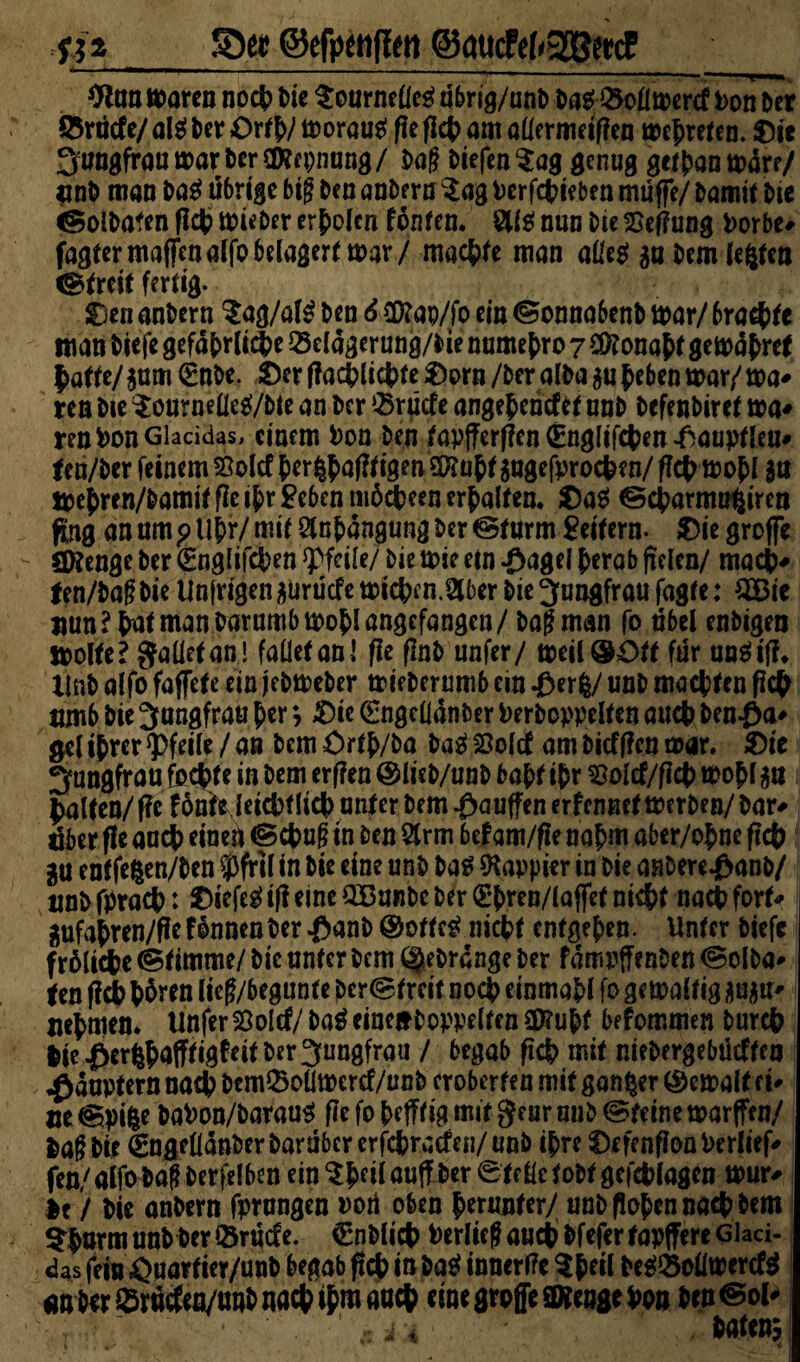 532 Der Gespensten Gauckel-Werck
Nun waren noch die Tournelles übrig/und das Bollwerck von der
Brücke/ als der Orth/ woraus sie sich am allermeisten wehreten. Die
Jungfrau war der Meynung/ daß diesen Tag genug gethan wäre/
und man das übrige biß den andern Tag verschieben müsse/ damit die
Soldaten sich wieder erholen könten. Als nun die Vestung vorbe-
sagter massen also belagert war / machte man alles zu dem letzten
Streit fertig.
Den andern Tag/als den 6 May/so ein Sonnabend war/ brachte
man diese gefährliche Belägerung/die numehro 7 Monaht gewähret
hatte/ zum Ende. Der stachlichte Dorn /der alda zu heben war/ wa-
ren die Tournelles/die an der Brücke angehenckt und defendiret wa-
ren von Glacidas, einem von den tapffersten Englischen Hauptleu-
ten/der seinem Volck hertzhafftigen Muht zugesprochen/ sich wohl zu
wehren/damit sie ihr Leben möcheen erhalten. Das Scharmutziren
fing an um 9 Uhr/ mit Anhängung der Sturm Leitern. Die grosse
Menge der Englischen Pfeile/ die wie ein Hagel herab fielen/ mach-
ten/daß die Unsrigen zurücke wichen.Aber die Jungfrau sagte: Wie
nun? hat man darumb wohl angefangen/ daß man so übel endigen
wolte? Fallet an! fallet an! sie sind unser/ weil GOtt für uns ist.
Und also fassete ein jedweder wiederumb ein Hertz/ und machten sich
umb die Jungfrau her; Die Engelländer verdoppelten auch den Ha-
gel ihrer Pfeile / an dem Orth/da das Volck am dicksten war. Die
Jungfrau fochte in dem ersten Glied/und baht ihr Volck/sich wohl zu
halten/ sie könte leichtlich unter dem Hauffen erkennet werden/ dar-
über sie auch einen Schuß in den Arm bekam/sie nahm aber/ohne sich
zu entsetzen/den Pfril in die eine und das Rappier in die andere Hand/
und sprach: Dieses ist eine Wunde der Ehren/lasset nicht nach fort-
zufahren/sie können der Hand Gottes nicht entgehen. Unter diese
fröliche Stimme/ die unter dem Gedränge der kämpffenden Solda-
ten sich hören ließ/begunte der Streit noch einmahl so gewaltig zuzu-
nehmen. Unser Volck/ das einen doppelten Muht bekommen durch
die Hertzhafftigkeit der Jungfrau / begab sich mit niedergebückten
Häuptern nach dem Bollwerck/und eroberten mit gantzer Gewalt ei-
ne Spitze davon/daraus sie so hefftig mit Feur und Steine warffen/
daß die Engelländer darüber erschracken/ und ihre Defension verlies-
sen/ also daß derselben ein Theil auff der Stelle todt geschlagen wur-
de / die andern sprungen von oben herunter/ und flohen nach dem
Thurm und der Brücke. Endlich verließ auch dieser tapffere Glaci-
das sein Quartier/und begab sich in das innerste Theil des Bollwercks
an der Brücken/und nach ihm auch eine grosse Menge von den Sol-
daten;